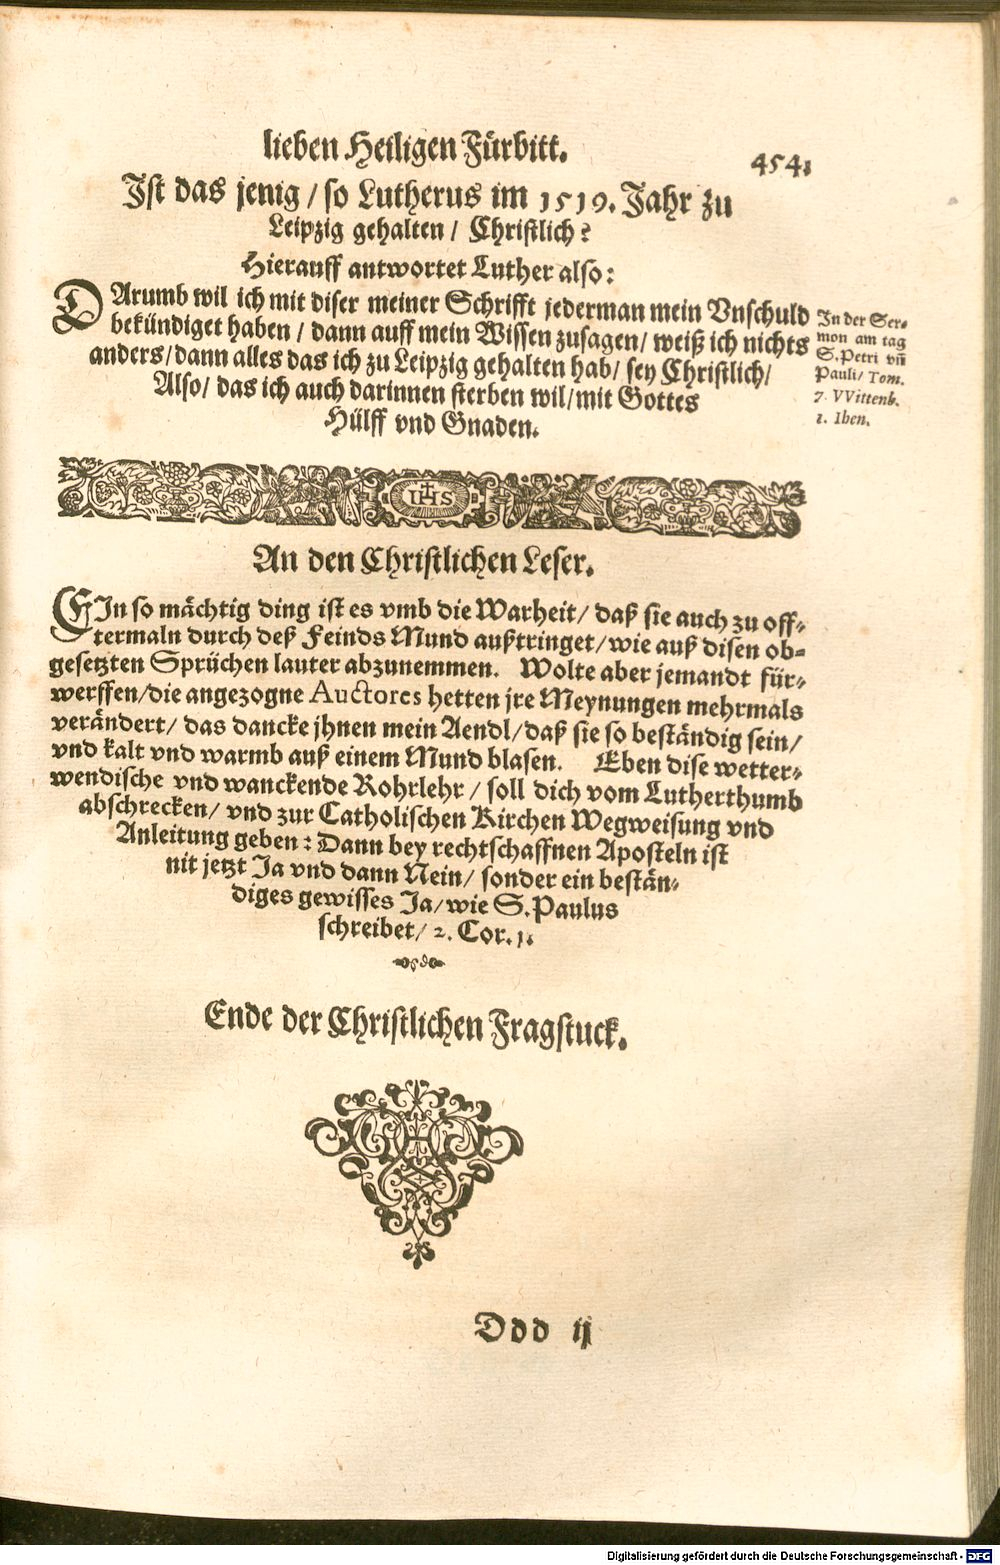 lieben Heiligen Fürbitt.
454.
Ist das jenig / so Lutherus im 1519. Jahr zu
Leipzig gehalten / Christlich?
Hierauff antwortet Luther also:
DArumb wil ich mit diser meiner Schrifft jederman mein Vnschuld
bekündiget haben / dann auff mein Wissen zusagen / weiß ich nichts
anders / dann alles das ich zu Leipzig gehalten hab / sey Christlich /
Also / das ich auch darinnen sterben wil / mit Gottes
Hülff vnd Gnaden.
In der Ser-
mon am tag
S. Petri vñ
Pauli / Tom.
7. VVittenb.
1. Ihen.
IHS
An den Christlichen Leser.
EIn so mächtig ding ist es vmb die Warheit / daß sie auch zu off-
termaln durch deß Feinds Mund außtringet / wie auß disen ob-
gesetzten Sprüchen lauter abzunemmen. Wolte aber jemandt für-
werffen / die angezogne Auctores hetten jre Meynungen mehrmals
verändert / das dancke jhnen mein Aendl / daß sie so beständig sein /
vnd kalt vnd warmb auß einem Mund blasen. Eben dise wetter-
wendische vnd wanckende Rohrlehr / soll dich vom Lutherthumb
abschrecken / vnd zur Catholischen Kirchen Wegweisung vnd
Anleitung geben: Dann bey rechtschaffnen Aposteln ist
nit jetzt Ja vnd dann Nein / sonder ein bestän-
diges gewisses Ja / wie S. Paulus
schreibet / 2. Cor. 1.
Ende der Christlichen Fragstuck.
Ddd ij
Digitalisierung gefördert durch die Deutsche Forschungsgemeinschaft - DFG